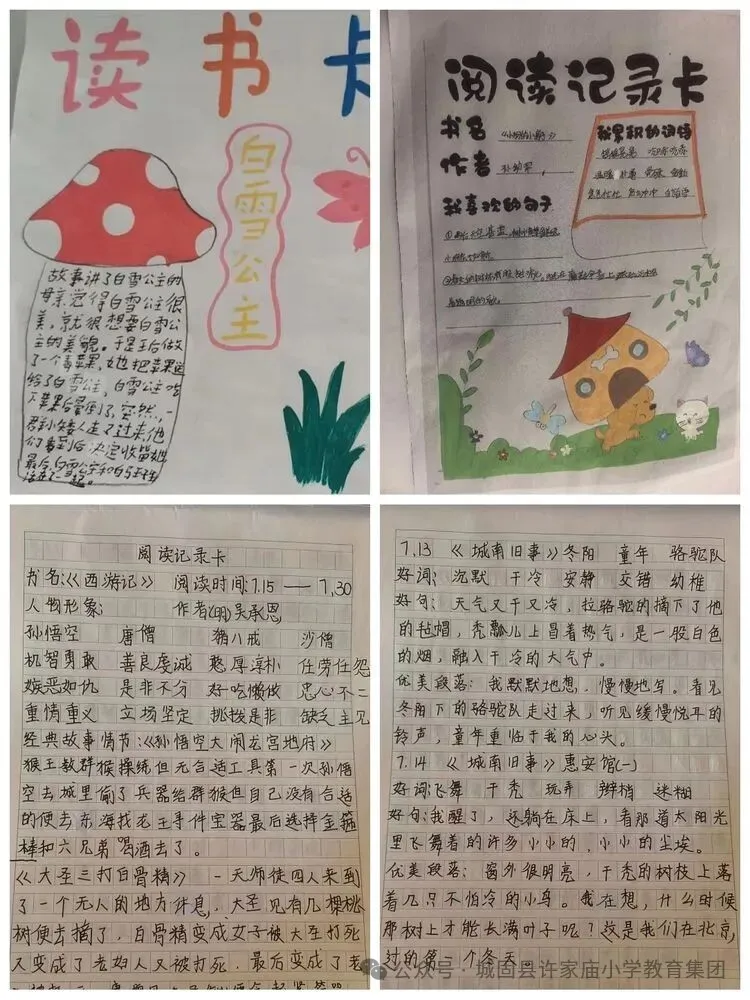 读书卡
白雪公主
故事讲了白雪公主的
母亲觉得白雪公主很
美,就很想要白雪公
主的美貌。于是王后做
了一个毒苹果,她把苹果送
给了白雪公主,白雪公主吃
下苹果后晕倒了,突然,一
群小矮人走了过来,他
们看到后决定收留她
最后,白雪公主和白马王子
阅读记录卡
书名
作者
我累积的词语
我喜欢的句子
阅读记录卡
书名:《西游记》 阅读时间:7.15——7.30
人物形象: 作者(明)吴承恩
孙悟空 唐僧 猪八戒 沙僧
机智勇敢 善良虔诚 憨厚淳朴 任劳任怨
嫉恶如仇 是非不分 好吃懒做 忠心不二
重情重义 立场坚定 挑拨是非 缺乏主见
经典故事情节:《孙悟空大闹龙宫地府》
猴王教群猴操练但无合适工具第一次孙悟
空去城里偷了兵器给群猴但自己没有合适
的便去东海找龙王寻件宝器最后选择金箍
棒和六兄弟喝酒去了。
《大圣三打白骨精》 一天师徒四人来到
了一个无人的地方休息,大圣见有几棵桃
树便去摘了,白骨精变成女子被大圣打死
又变成了老妇人又被打死,最后变成了老
7.13 《城南旧事》冬阳 童年 骆驼队
好词:沉默 干冷 安静 交错 幼稚
好句:天气又干又冷,拉骆驼的摘下了他
的毡帽,秃瓢儿上冒着热气,是一股白色
的烟,融入干冷的大气中。
优美段落:我默默地想,慢慢地写。看见
冬阳下的骆驼队走过来,听见缓慢悦耳的
铃声,童年重临于我的心头。
7.14 《城南旧事》惠安馆(一)
好词:飞舞 干秃 玩弄 辫梢 迷糊
好句:我醒了,还躺在床上,看那道太阳光
里飞舞着的许多小小的,小小的尘埃。
优美段落:窗外很明亮,干秃的树枝上落
着几只不怕冷的小鸟。我在想,什么时候
那树上才能长满叶子呢?这是我们在北京
过的第一个冬天。
公众号·城固县许家庙小学教育集团